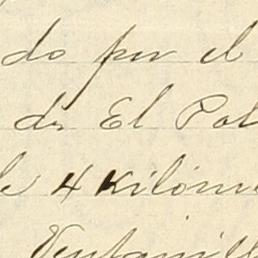 do por el
de El Pal
le 4 Kilóm
Ventanill